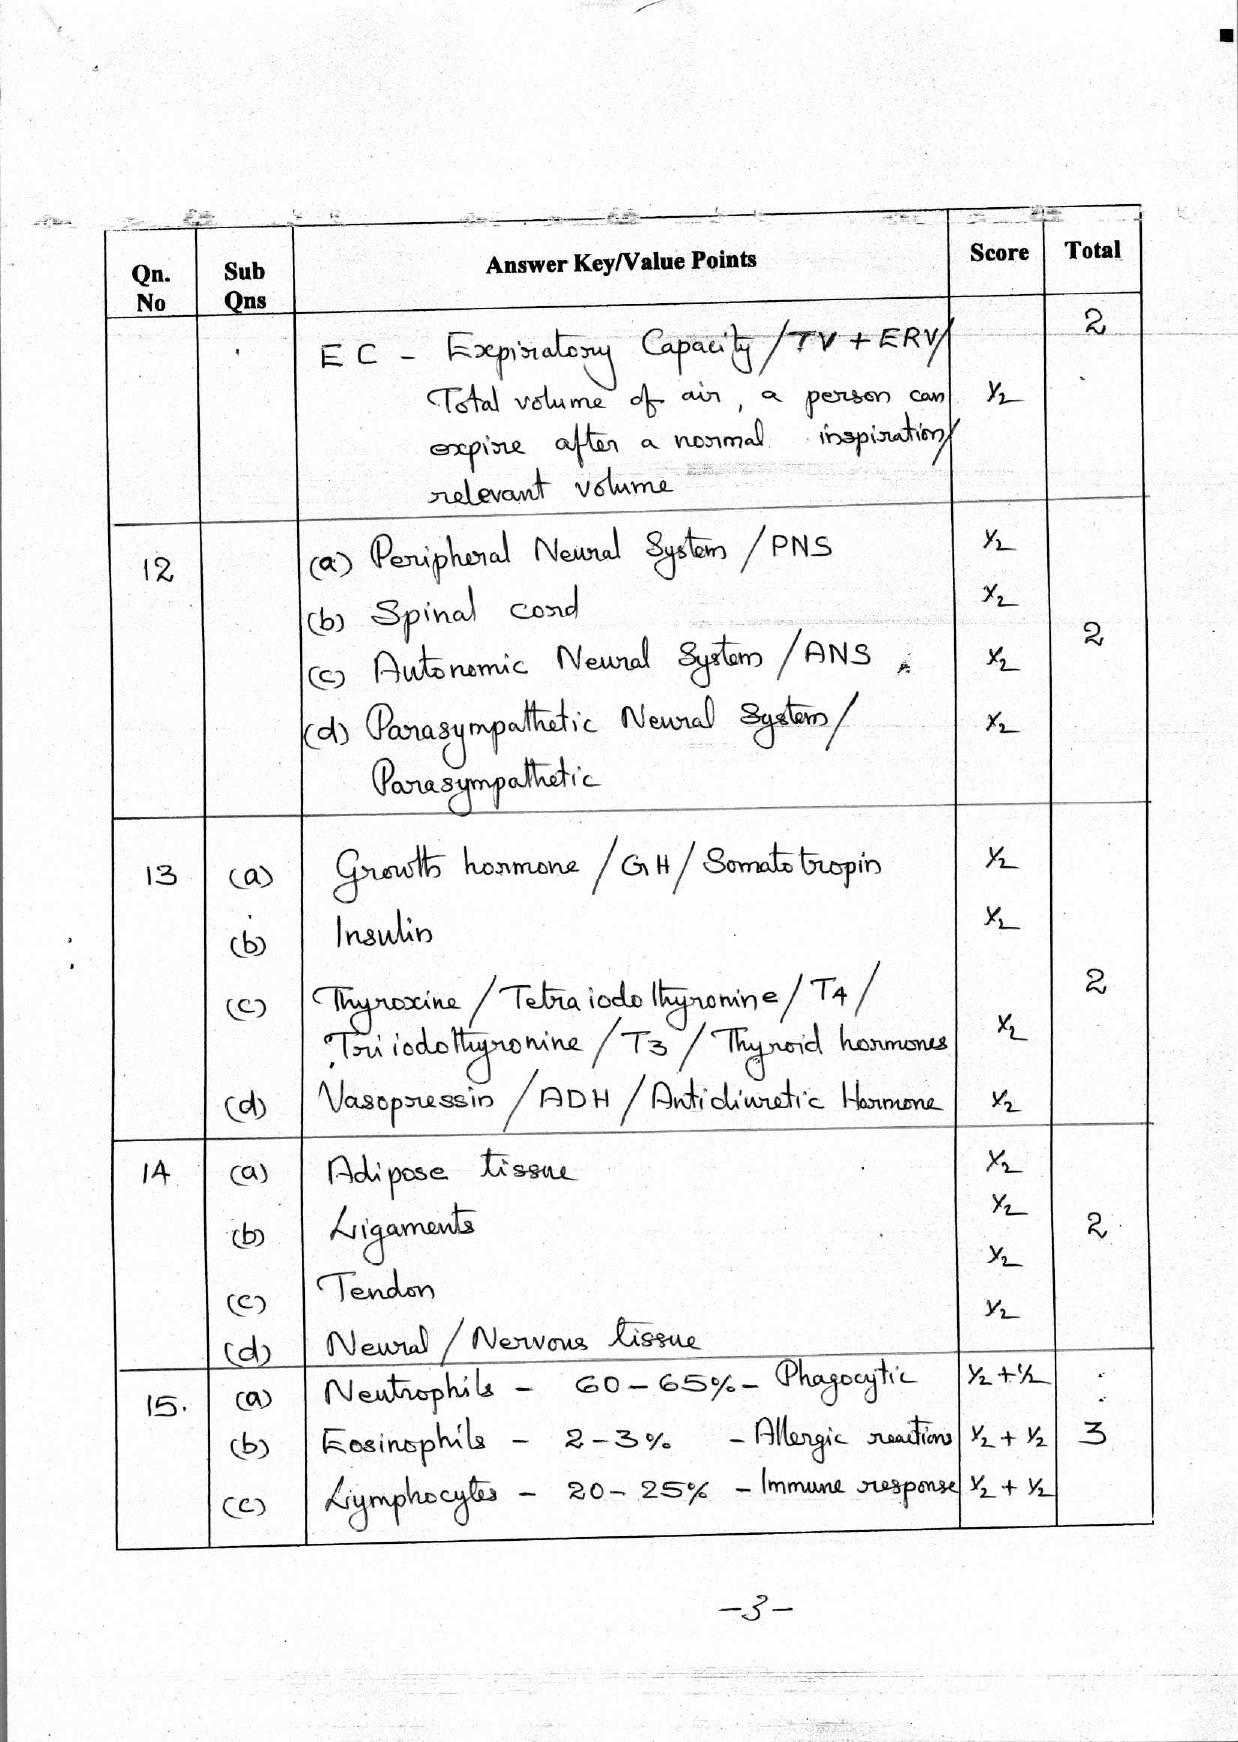 Qn. No | Sub Qns | Answer Key/Value Points | Score | Total
E C - Expiratory Capacity / TV + ERV/ | 2
Total volume of air, a person can | ½
expire after a normal inspiration/
relevant volume
12 | (a) Peripheral Neural System / PNS | ½
(b) Spinal cord | ½
(c) Autonomic Neural System / ANS | ½ | 2
(d) Parasympathetic Neural System/ | ½
Parasympathetic
13 | (a) | Growth hormone / GH / Somatotropin | ½
(b) | Insulin | ½
(c) | Thyroxine / Tetraiodothyronine / T4 / | 2
Triiodothyronine / T3 / Thyroid hormones | ½
(d) | Vasopressin / ADH / Antidiuretic Hormone | ½
14 | (a) | Adipose tissue | ½
(b) | Ligaments | ½ | 2
(c) | Tendon | ½
(d) | Neural / Nervous tissue | ½
15. | (a) | Neutrophils - 60-65% - Phagocytic | ½ + ½
(b) | Eosinophils - 2-3% - Allergic reactions | ½ + ½ | 3
(c) | Lymphocytes - 20-25% - Immune response | ½ + ½
-3-